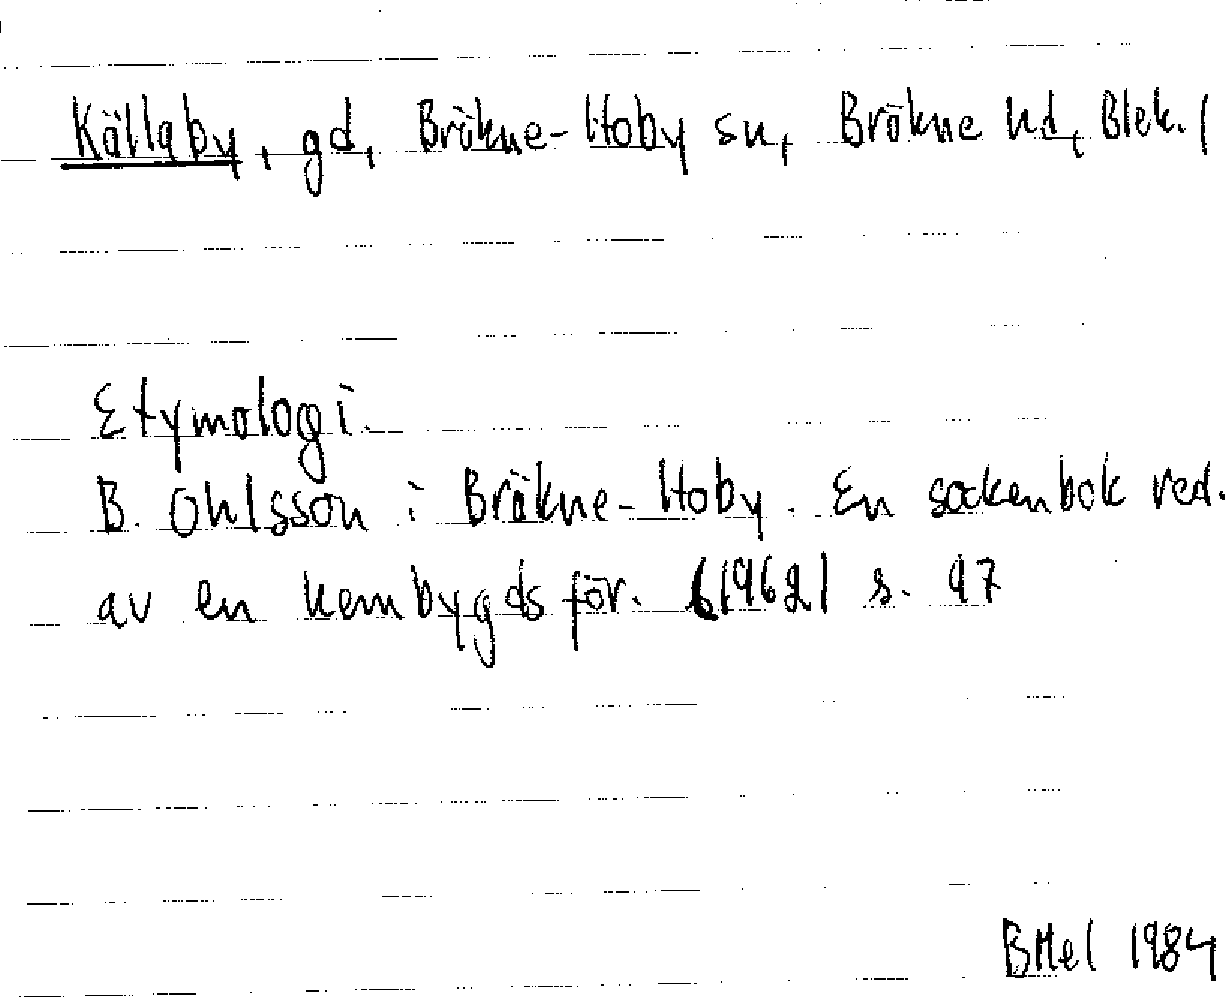 Källaby, gd, Bräkne-Hoby sn, Bräkne hd, Blek. l
Etymologi.
B. Ohlsson i Bräkne-Hoby. En sockenbok red.
av en hembygdsför. (1962) s. 97
BHel 1984